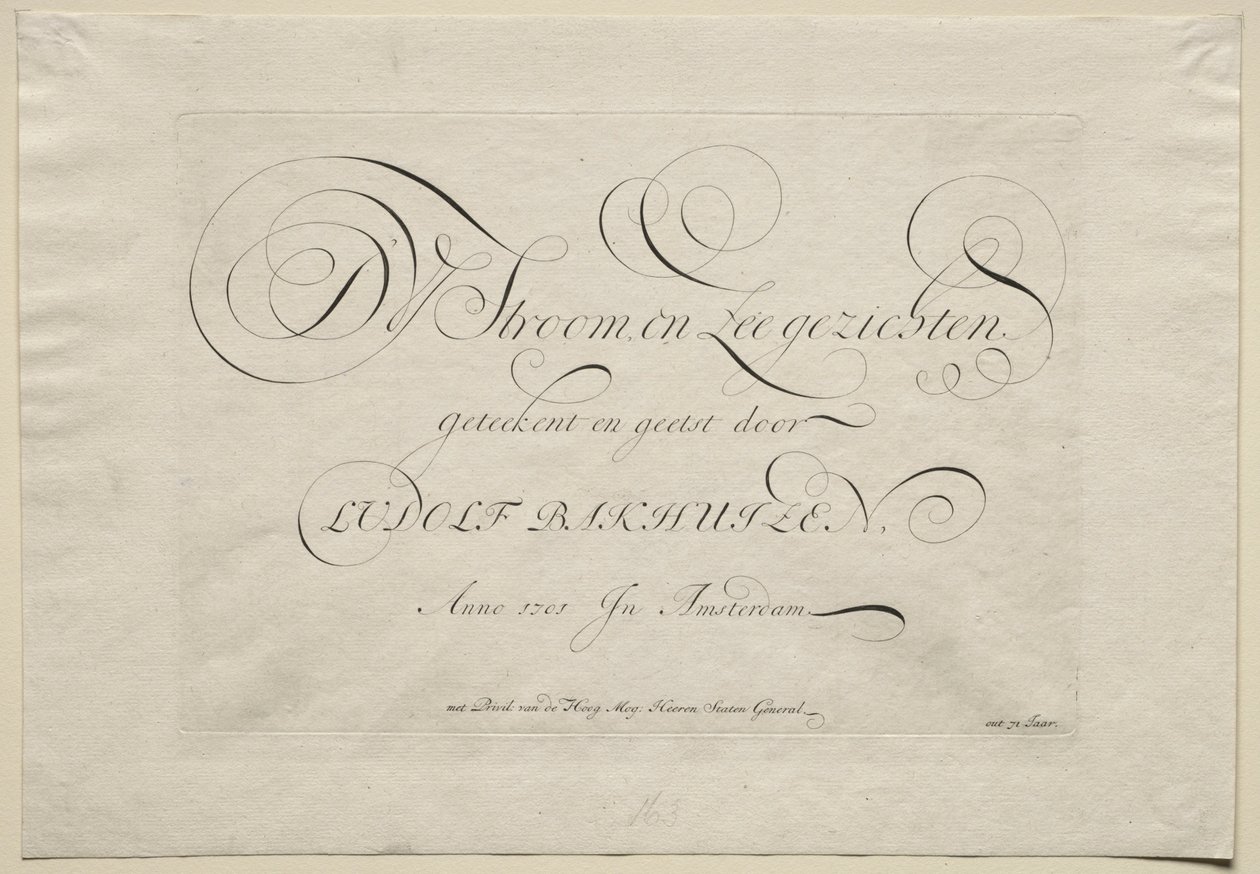 D'Y Stroom, en Zee gezichten
geteekent en geetst door
LUDOLF BAKHUIZEN,
Anno 1701 In Amsterdam.
met Privil: van de Hoog Mog: Heeren Staten General.
out 71 Jaar.
163